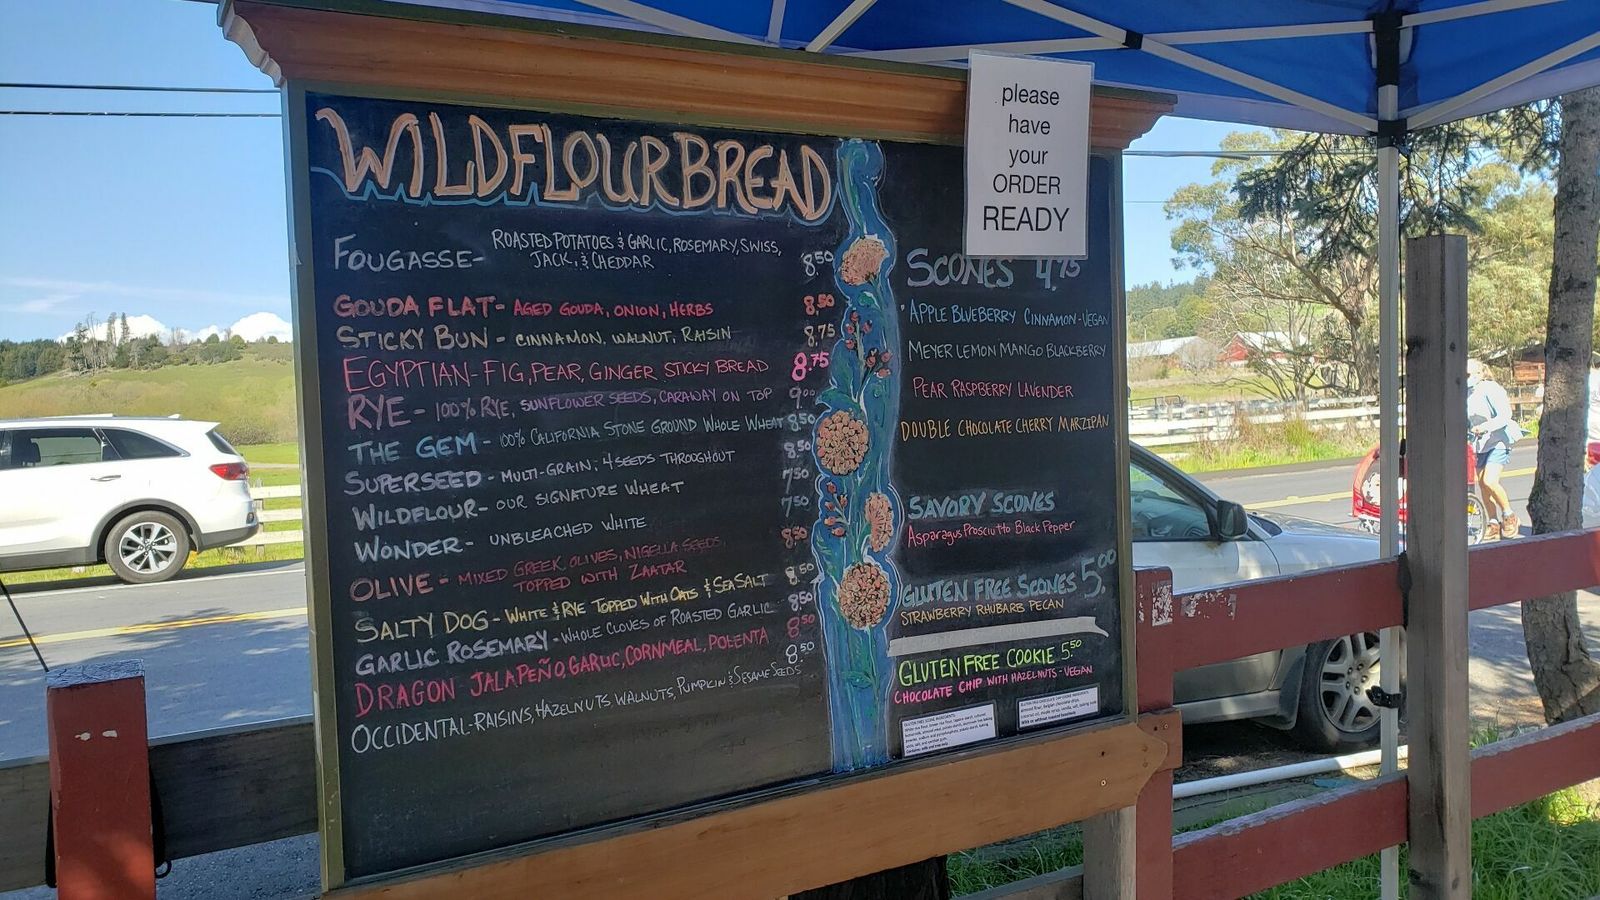 WILDFLOUR BREAD
FOUGASSE- ROASTED POTATOES & GARLIC, ROSEMARY, SWISS, 8.50
JACK, & CHEDDAR
GOUDA FLAT- AGED GOUDA, ONION, HERBS 8.50
STICKY BUN - CINNAMON, WALNUT, RAISIN 8.75
EGYPTIAN- FIG, PEAR, GINGER STICKY BREAD 8.75
RYE - 100% RYE, SUNFLOWER SEEDS, CARAWAY ON TOP 9.00
THE GEM - 100% CALIFORNIA STONE GROUND WHOLE WHEAT 8.50
SUPERSEED - MULTI-GRAIN; 4 SEEDS THROUGHOUT 8.50
WILDFLOUR- OUR SIGNATURE WHEAT 7.50
WONDER- UNBLEACHED WHITE 7.50
OLIVE - MIXED GREEK OLIVES, NIGELLA SEEDS, 8.50
TOPPED WITH ZAATAR
SALTY DOG - WHITE & RYE TOPPED WITH OATS & SEA SALT 8.50
GARLIC ROSEMARY - WHOLE CLOVES OF ROASTED GARLIC 8.50
DRAGON - JALAPEÑO, GARLIC, CORNMEAL, POLENTA 8.50
OCCIDENTAL- RAISINS, HAZELNUTS, WALNUTS, PUMPKIN & SESAME SEEDS 8.50
please
have
your
ORDER
READY
SCONES 4.75
APPLE BLUEBERRY CINNAMON - VEGAN
MEYER LEMON MANGO BLACKBERRY
PEAR RASPBERRY LAVENDER
DOUBLE CHOCOLATE CHERRY MARZIPAN
SAVORY SCONES
Asparagus Prosciutto Black Pepper
GLUTEN FREE SCONES 5.00
STRAWBERRY RHUBARB PECAN
GLUTEN FREE COOKIE 5.50
CHOCOLATE CHIP WITH HAZELNUTS - VEGAN